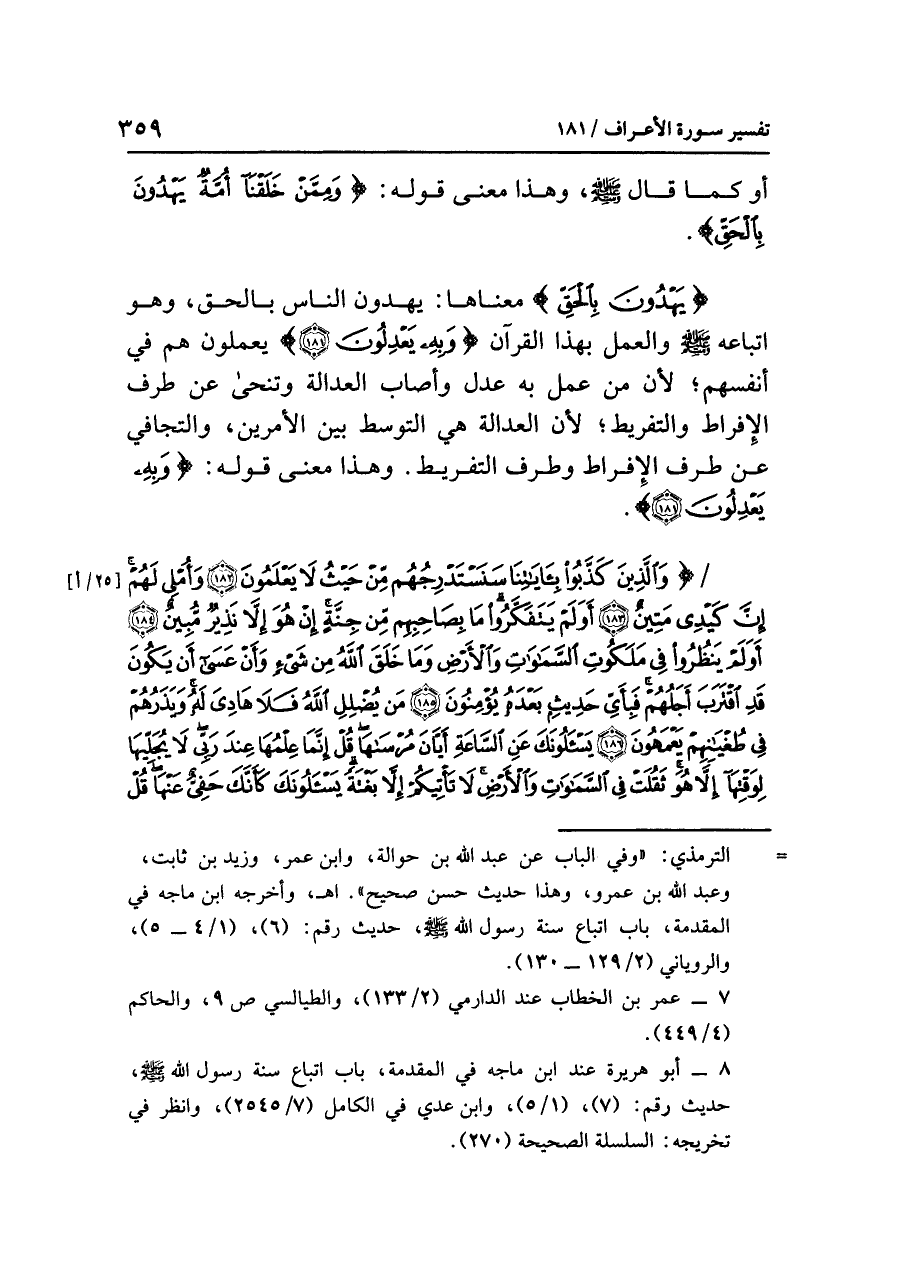 تفسير سورة الأعراف / ١٨١
٣٥٩
أو كما قال ﷺ، وهذا معنى قوله: ﴿ وَمِمَّنْ خَلَقْنَآ أُمَّةٌ يَهْدُونَ
بِٱلْحَقِّ﴾.
﴿ يَهْدُونَ بِٱلْحَقِّ ﴾ معناها: يهدون الناس بالحق، وهو
اتباعه ﷺ والعمل بهذا القرآن ﴿ وَبِهِۦ يَعْدِلُونَ ١٨١﴾ يعملون هم في
أنفسهم؛ لأن من عمل به عدل وأصاب العدالة وتنحىٰ عن طرف
الإفراط والتفريط؛ لأن العدالة هي التوسط بين الأمرين، والتجافي
عن طرف الإفراط وطرف التفريط. وهذا معنى قوله: ﴿ وَبِهِۦ
يَعْدِلُونَ ١٨١﴾.
/ ﴿ وَٱلَّذِينَ كَذَّبُوا۟ بِـَٔايَـٰتِنَا سَنَسْتَدْرِجُهُم مِّنْ حَيْثُ لَا يَعْلَمُونَ ١٨٢ وَأُمْلِى لَهُمْ ۚ [٢٥/أ]
إِنَّ كَيْدِى مَتِينٌ ١٨٣ أَوَلَمْ يَتَفَكَّرُوا۟ ۗ مَا بِصَاحِبِهِم مِّن جِنَّةٍ ۚ إِنْ هُوَ إِلَّا نَذِيرٌ مُّبِينٌ ١٨٤
أَوَلَمْ يَنظُرُوا۟ فِى مَلَكُوتِ ٱلسَّمَـٰوَٰتِ وَٱلْأَرْضِ وَمَا خَلَقَ ٱللَّهُ مِن شَىْءٍ وَأَنْ عَسَىٰٓ أَن يَكُونَ
قَدِ ٱقْتَرَبَ أَجَلُهُمْ ۖ فَبِأَىِّ حَدِيثٍۭ بَعْدَهُۥ يُؤْمِنُونَ ١٨٥ مَن يُضْلِلِ ٱللَّهُ فَلَا هَادِىَ لَهُۥ ۚ وَيَذَرُهُمْ
فِى طُغْيَـٰنِهِمْ يَعْمَهُونَ ١٨٦ يَسْـَٔلُونَكَ عَنِ ٱلسَّاعَةِ أَيَّانَ مُرْسَىٰهَا ۖ قُلْ إِنَّمَا عِلْمُهَا عِندَ رَبِّى ۖ لَا يُجَلِّيهَا
لِوَقْتِهَآ إِلَّا هُوَ ۚ ثَقُلَتْ فِى ٱلسَّمَـٰوَٰتِ وَٱلْأَرْضِ ۚ لَا تَأْتِيكُمْ إِلَّا بَغْتَةً ۗ يَسْـَٔلُونَكَ كَأَنَّكَ حَفِىٌّ عَنْهَا ۖ قُلْ
= الترمذي: «وفي الباب عن عبد الله بن حوالة، وابن عمر، وزيد بن ثابت،
وعبد الله بن عمرو، وهذا حديث حسن صحيح». اهـ، وأخرجه ابن ماجه في
المقدمة، باب اتباع سنة رسول الله ﷺ، حديث رقم: (٦)، (١/٤ ــ ٥)،
والروياني (٢/١٢٩ ــ ١٣٠).
٧ ــ عمر بن الخطاب عند الدارمي (٢/١٣٣)، والطيالسي ص ٩، والحاكم
(٤/٤٤٩).
٨ ــ أبو هريرة عند ابن ماجه في المقدمة، باب اتباع سنة رسول الله ﷺ،
حديث رقم: (٧)، (١/٥)، وابن عدي في الكامل (٧/٢٥٤٥)، وانظر في
تخريجه: السلسلة الصحيحة (٢٧٠).